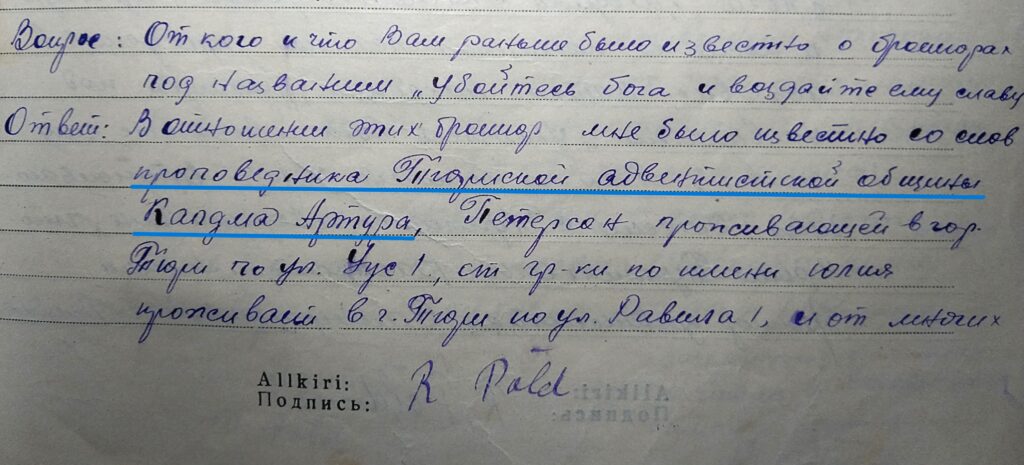 Вопрос: От кого и что Вам раньше было известно о брошюрах
под названием „Убойтесь бога и воздайте ему славу
Ответ: В отношении этих брошюр мне было известно со слов
проповедника Тюриской адвентистской общины
Капдма Артура, Петерсон проживающей в гор.
Тюри по ул. Уус 1., от гр-ки по имени Юлия
проживает в г. Тюри по ул. Равила 1, и от многих
Allkiri:
Подпись: R Põld